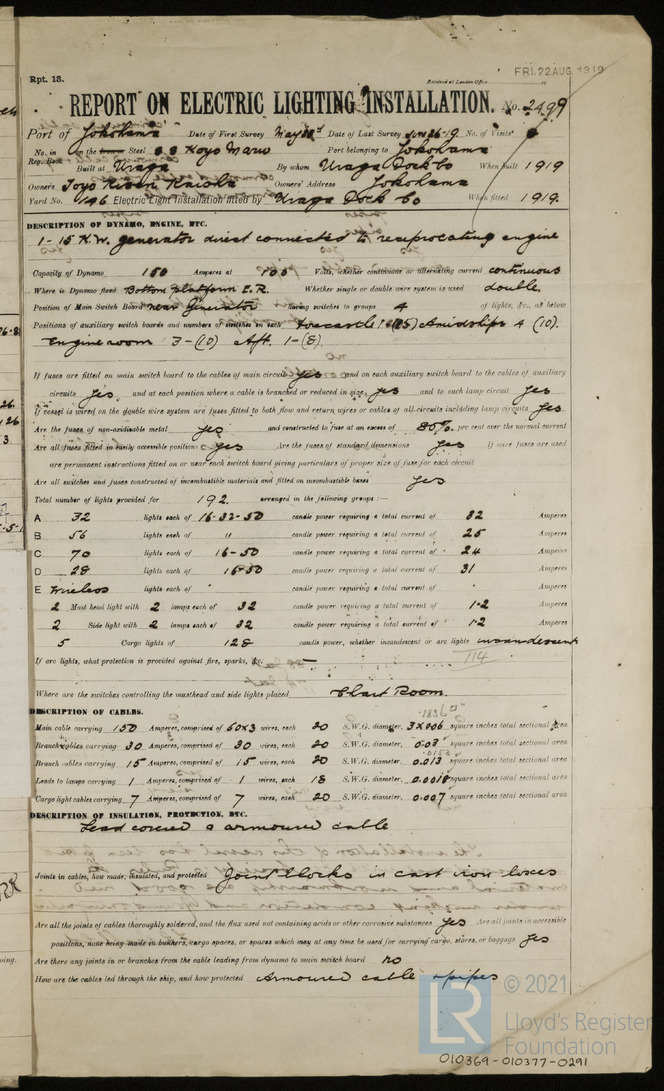 Rpt. 13.
Received at London Office
FRI. 22 AUG. 1919
REPORT ON ELECTRIC LIGHTING INSTALLATION. No. 2499
Port of Yokohama Date of First Survey May Date of Last Survey June 26-19 No. of Visits
No. in Reg. Book on the Steel S S Koyo Maru Port belonging to Yokohama
Built at Uraga By whom Uraga Dock Co When built 1919
Owners Toyo Kisen Kaisha Owners' Address Yokohama
Yard No. 146 Electric Light Installation fitted by Uraga Dock Co When fitted 1919.
DESCRIPTION OF DYNAMO, ENGINE, ETC.
1 - 15 K.W. generator direct connected to reciprocating engine
Capacity of Dynamo 150 Amperes at 100 Volts, whether continuous or alternating current continuous
Where is Dynamo fixed Bottom platform E.R. Whether single or double wire system is used double.
Position of Main Switch Board near Generator having switches to groups 4 of lights, &c., as below
Positions of auxiliary switch boards and numbers of switches on each Amidships 4 (10).
Engine room 3-(10) Aft. 1-(8).
If fuses are fitted on main switch board to the cables of main circuit yes and on each auxiliary switch board to the cables of auxiliary
circuits yes and at each position where a cable is branched or reduced in size yes and to each lamp circuit yes
If vessel is wired on the double wire system are fuses fitted to both flow and return wires or cables of all circuits including lamp circuits yes
Are the fuses of non-oxidizable metal yes and constructed to fuse at an excess of 80%. per cent over the normal current
Are all fuses fitted in easily accessible positions yes Are the fuses of standard dimensions yes If wire fuses are used
are permanent instructions fitted on or near each switch board giving particulars of proper size of fuse for each circuit
Are all switches and fuses constructed of incombustible materials and fitted on incombustible bases yes
Total number of lights provided for 192. arranged in the following groups :—
A 32 lights each of 16-32-50 candle power requiring a total current of 32 Amperes
B 56 lights each of " candle power requiring a total current of 25 Amperes
C 70 lights each of 16-50 candle power requiring a total current of 24 Amperes
D 28 lights each of 16-50 candle power requiring a total current of 31 Amperes
E Wireless lights each of candle power requiring a total current of Amperes
2 Mast head light with 2 lamps each of 32 candle power requiring a total current of 1.2 Amperes
2 Side light with 2 lamps each of 32 candle power requiring a total current of 1.2 Amperes
5 Cargo lights of 128 candle power, whether incandescent or arc lights incandescent
114
If arc lights, what protection is provided against fire, sparks, &c. —
Where are the switches controlling the masthead and side lights placed Chart Room.
DESCRIPTION OF CABLES.
.1836 □"
Main cable carrying 150 Amperes, comprised of 60x3 wires, each 20 S.W.G. diameter, 3x.006 square inches total sectional area
Branch cables carrying 30 Amperes, comprised of 30 wires, each 20 S.W.G. diameter, 0.03 square inches total sectional area
.0153
Branch cables carrying 15 Amperes, comprised of 15 wires, each 20 S.W.G. diameter, 0.013 square inches total sectional area
Leads to lamps carrying 1 Amperes, comprised of 1 wires, each 18 S.W.G. diameter, 0.0018 square inches total sectional area
Cargo light cables carrying 7 Amperes, comprised of 7 wires, each 20 S.W.G. diameter, 0.007 square inches total sectional area
DESCRIPTION OF INSULATION, PROTECTION, ETC.
Lead covered & armoured cable
Joints in cables, how made, insulated, and protected Joint blocks in cast iron boxes
Are all the joints of cables thoroughly soldered, and the flux used not containing acids or other corrosive substances yes Are all joints in accessible
positions, none being made in bunkers, cargo spaces, or spaces which may at any time be used for carrying cargo, stores, or baggage yes
Are there any joints in or branches from the cable leading from dynamo to main switch board no
How are the cables led through the ship, and how protected Armoured cable & pipes
© 2021
LR
Lloyd's Register
Foundation
010369-010377-0291